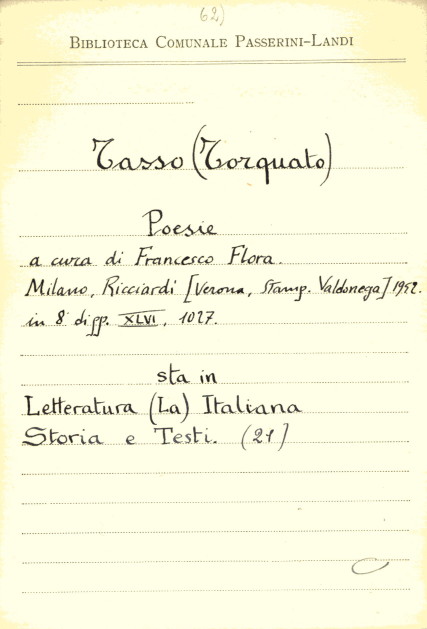 62)
BIBLIOTECA COMUNALE PASSERINI-LANDI
Tasso (Torquato)
Poesie
a cura di Francesco Flora.
Milano, Ricciardi [Verona, Stamp. Valdonega] 1952.
in 8° di pp. XLVI, 1027.
sta in
Letteratura (La) Italiana
Storia e Testi. (21]